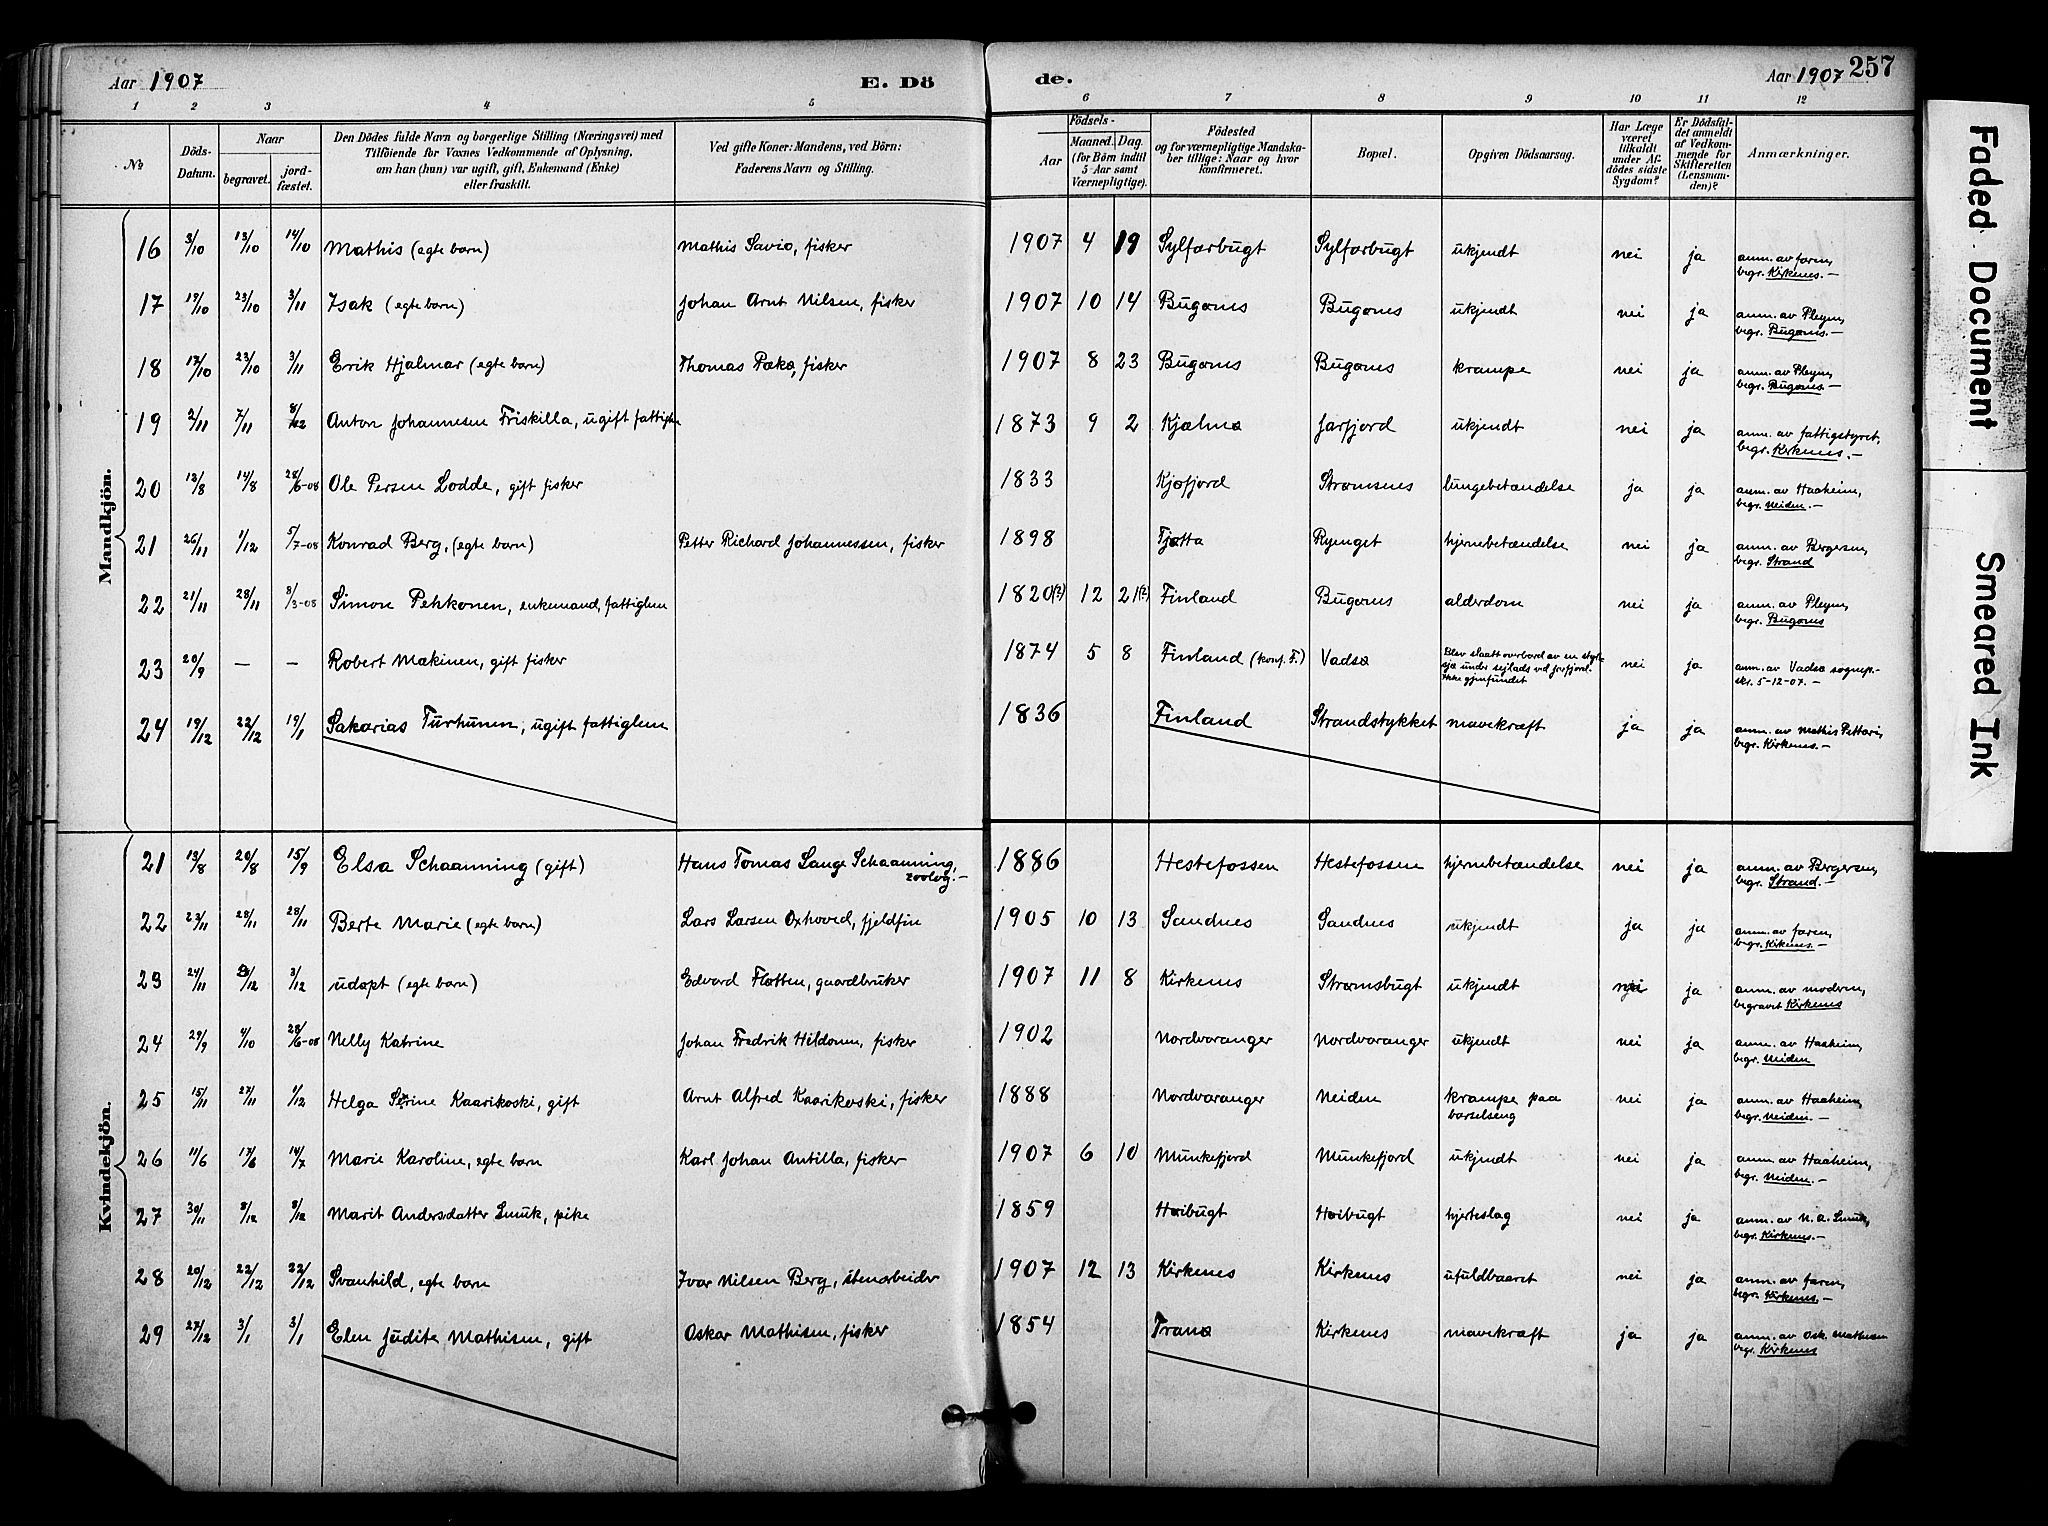 Aar 1907 E. Dö de. Aar 1907 257
1 2 3 4 5 6 7 8 9 10 11 12
№ Döds-Datum. Naar begravet. jordfæstet. Den Dödes fulde Navn og borgerlige Stilling (Næringsvei) med Tilföiende for Voxnes Vedkommende af Oplysning, om han (hun) var ugift, gift, Enkemand (Enke) eller fraskilt. Ved gifte Koner: Mandens, ved Börn: Faderens Navn og Stilling. Aar Födsels- Maaned. Dag. (for Börn indtil 5 Aar samt Værnepligtige). Födested og for værnepligtige Mandskaber tillige: Naar og hvor konfirmeret. Bopæl. Opgiven Dödsaarsag. Har Læge været tilkaldt under Afdödes sidste Sygdom? Er Dödsfaldet anmeldt af Vedkommende for Skifteretten (Lensmanden)? Anmærkninger.
Mandkjön.
16 3/10 13/10 14/10 Mathis (egte barn) Mathis Savio, fisker 1907 4 19 Sylfarbugt Sylfarbugt ukjendt nei ja anm. av faren, begr. Kirkenes.-
17 19/10 23/10 3/11 Isak (egte barn) Johan Arnt Nilsen, fisker 1907 10 14 Bugønes Bugønes ukjendt nei ja anm. av Pleym, begr. Bugønes.-
18 17/10 23/10 3/11 Erik Hjalmar (egte barn) Thomas Pækø, fisker 1907 8 23 Bugønes Bugønes krampe nei ja anm. av Pleym, begr. Bugønes.-
19 2/11 7/11 8/12 Anton Johannesen Friskilla, ugift fattiglem 1873 9 2 Kjælmø Jarfjord ukjendt nei ja anm. av fattigstyret, begr. Kirkenes.-
20 13/8 14/8 28/6-08 Ole Persen Lodde, gift fisker 1833 Kjøfjord Strømsnes lungebetændelse ja ja anm. av Haaheim, begr. Neiden.-
21 26/11 1/12 5/7-08 Konrad Berg, (egte barn) Petter Richard Johannessen, fisker 1898 Tjøtta Ryenget hjernebetændelse nei ja anm. av Bergersen, begr. Strand
22 21/11 28/11 8/3-08 Simon Pehkonen, enkemand, fattiglem 1820(?) 12 21(?) Finland Bugønes alderdom nei ja anm. av Pleym, begr. Bugønes
23 20/9 — — Robert Mækinen, gift fisker 1874 5 8 Finland (konf. F.) Vadsø Blev slaatt overbord av en styrtsjø under seilads ved Jarfjord. Ikke gjenfundet nei ja anm. av Vadsø sognep. skr. 5-12-07.-
24 19/12 22/12 19/1 Sakarias Turhunen, ugift fattiglem 1836 Finland Strandstykket mavekræft ja ja anm. av Mathis Pettari, begr. Kirkenes.-
Kvindekjön.
21 13/8 20/8 15/9 Elsa Schaanning (gift) Hans Tomas Lange Schaanning, zoolog.- 1886 Hestefossen Hestefossen hjernebetændelse nei ja anm. av Bergersen, begr. Strand.-
22 23/11 28/11 28/11 Berte Marie (egte barn) Lars Larsen Oxhoved, fjeldfin 1905 10 13 Sandnes Sandnes ukjendt ja ja anm. av faren, begr. Kirkenes.-
23 24/11 3/12 3/12 udøpt (egte barn) Edvard Fløtten, gaardbruker 1907 11 8 Kirkenes Strømsbugt ukjendt nei ja anm. av modren, begravet Kirkenes
24 29/9 4/10 28/6-08 Nelly Katrine Johan Fredrik Hildonen, fisker 1902 Nordvaranger Nordvaranger ukjendt nei ja anm. av Haaheim, begr. Neiden
25 15/11 27/11 1/12 Helga Serine Kaarikoski, gift Arnt Alfred Kaarikoski, fisker 1888 Nordvaranger Neiden krampe paa barselseng nei ja anm. av Haaheim, begr. Neiden.-
26 11/6 17/6 14/7 Marie Karoline, egte barn Karl Johan Antilla, fisker 1907 6 10 Munkefjord Munkefjord ukjendt nei ja anm. av Haaheim, begr. Neiden.-
27 30/11 8/12 8/12 Marit Andersdatter Smuk, pike 1859 Høibugt Høibugt hjerteslag nei ja anm. av N. A. Smuk, begr. Kirkenes.-
28 20/12 22/12 22/12 Svanhild, egte barn Ivar Nilsen Berg, stenarbeider 1907 12 13 Kirkenes Kirkenes ufuldbaaret nei ja anm. av faren, begr. Kirkenes.-
29 27/12 3/1 3/1 Elen Judite Mathisen, gift Oskar Mathisen, fisker 1854 Tranø Kirkenes mavekræft ja ja anm. av Osk. Mathisen begr. Kirkenes
Faded Document
Smeared Ink